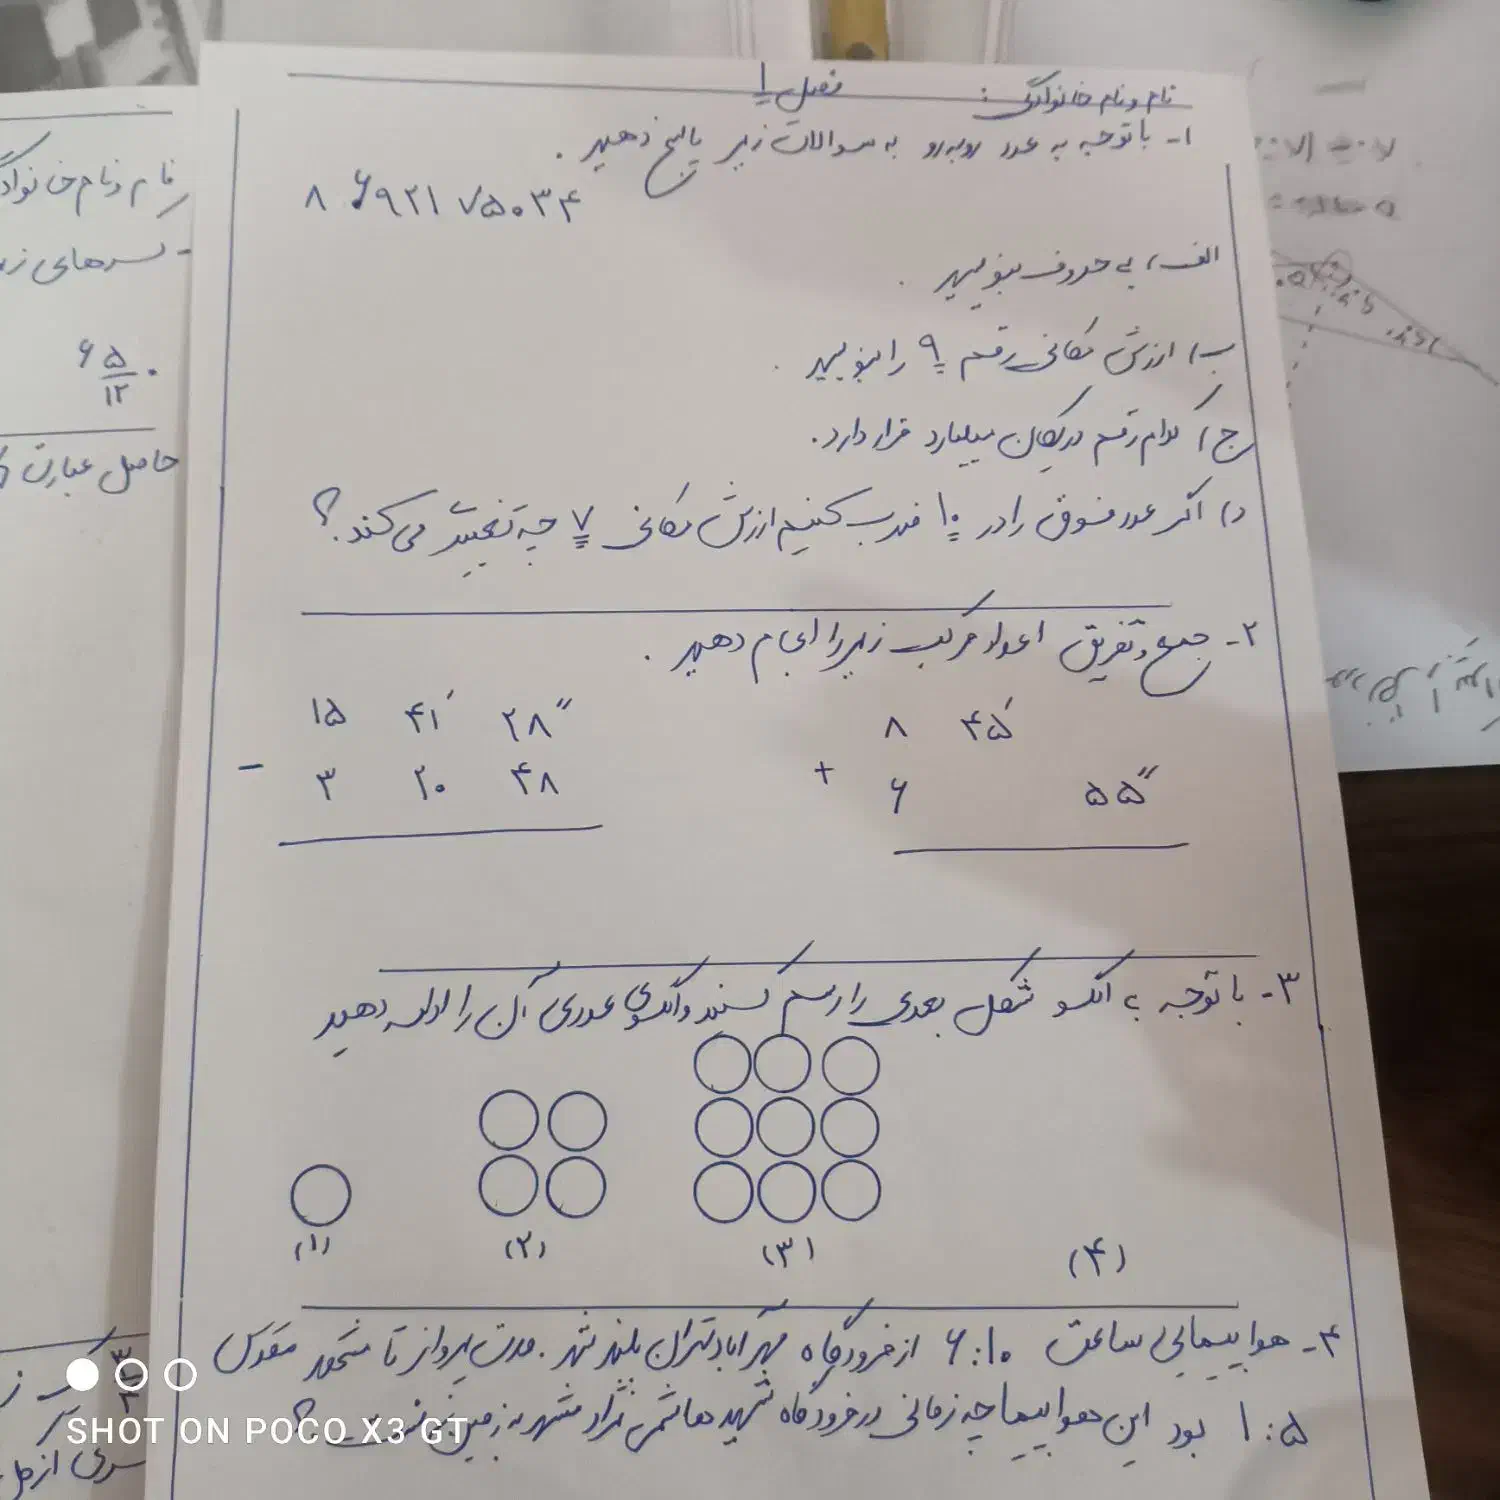 نام و نام خانوادگی :
فصل ۱
۱- با توجه به عدد روبه رو به سوالات زیر پاسخ دهید .
۸ ۰۶۹۲۱ ۷۵۰۳۴
الف) به حروف بنویسید .
ب) ارزش مکانی رقم ۹ را بنویسید .
ج) کدام رقم در یکان میلیارد قرار دارد.
د) اگر عدد فوق را در ۱۰ ضرب کنیم ارزش مکانی ۷ چه تغییری می کند ؟
۲- جمع و تفریق اعداد مرکب زیر را انجام دهید .
۸ ۴۵′
+ ۶ ۵۵″
۱۵ ۴۱′ ۲۸″
- ۳ ۲۰ ۴۸
۳- با توجه به الگو شکل بعدی را رسم کنید و الگوی عددی آن را ادامه دهید
(۱) (۲) (۳) (۴)
۴- هواپیمایی ساعت ۶:۱۰ از فرودگاه مهرآباد تهران بلند شد . مدت پرواز تا مشهد مقدس
۱:۵ بود این هواپیما چه زمانی در فرودگاه شهید هاشمی نژاد مشهد به زمین نشست ؟
نام و نام خانوادگی
- کسرهای زیر
۶ ۵/۱۲ .
حاصل عبارت
SHOT ON POCO X3 GT